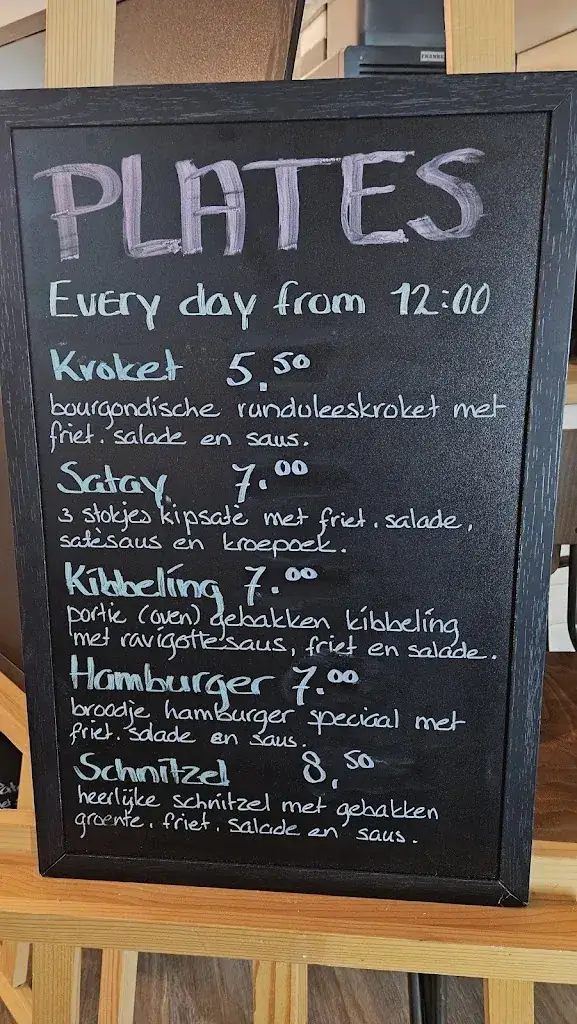 PLATES
Every day from 12:00
Kroket 5,50
bourgondische rundvleeskroket met
friet. salade en saus.
Satay 7.00
3 stokjes kipsaté met friet, salade,
satèsaus en kroepoek.
Kibbeling 7.00
portie (oven) gebakken kibbeling
met ravigottesaus, friet en salade.
Hamburger 7.00
broodje hamburger speciaal met
friet. salade en saus.
Schnitzel 8,50
heerlijke schnitzel met gebakken
groente, friet, salade en saus.